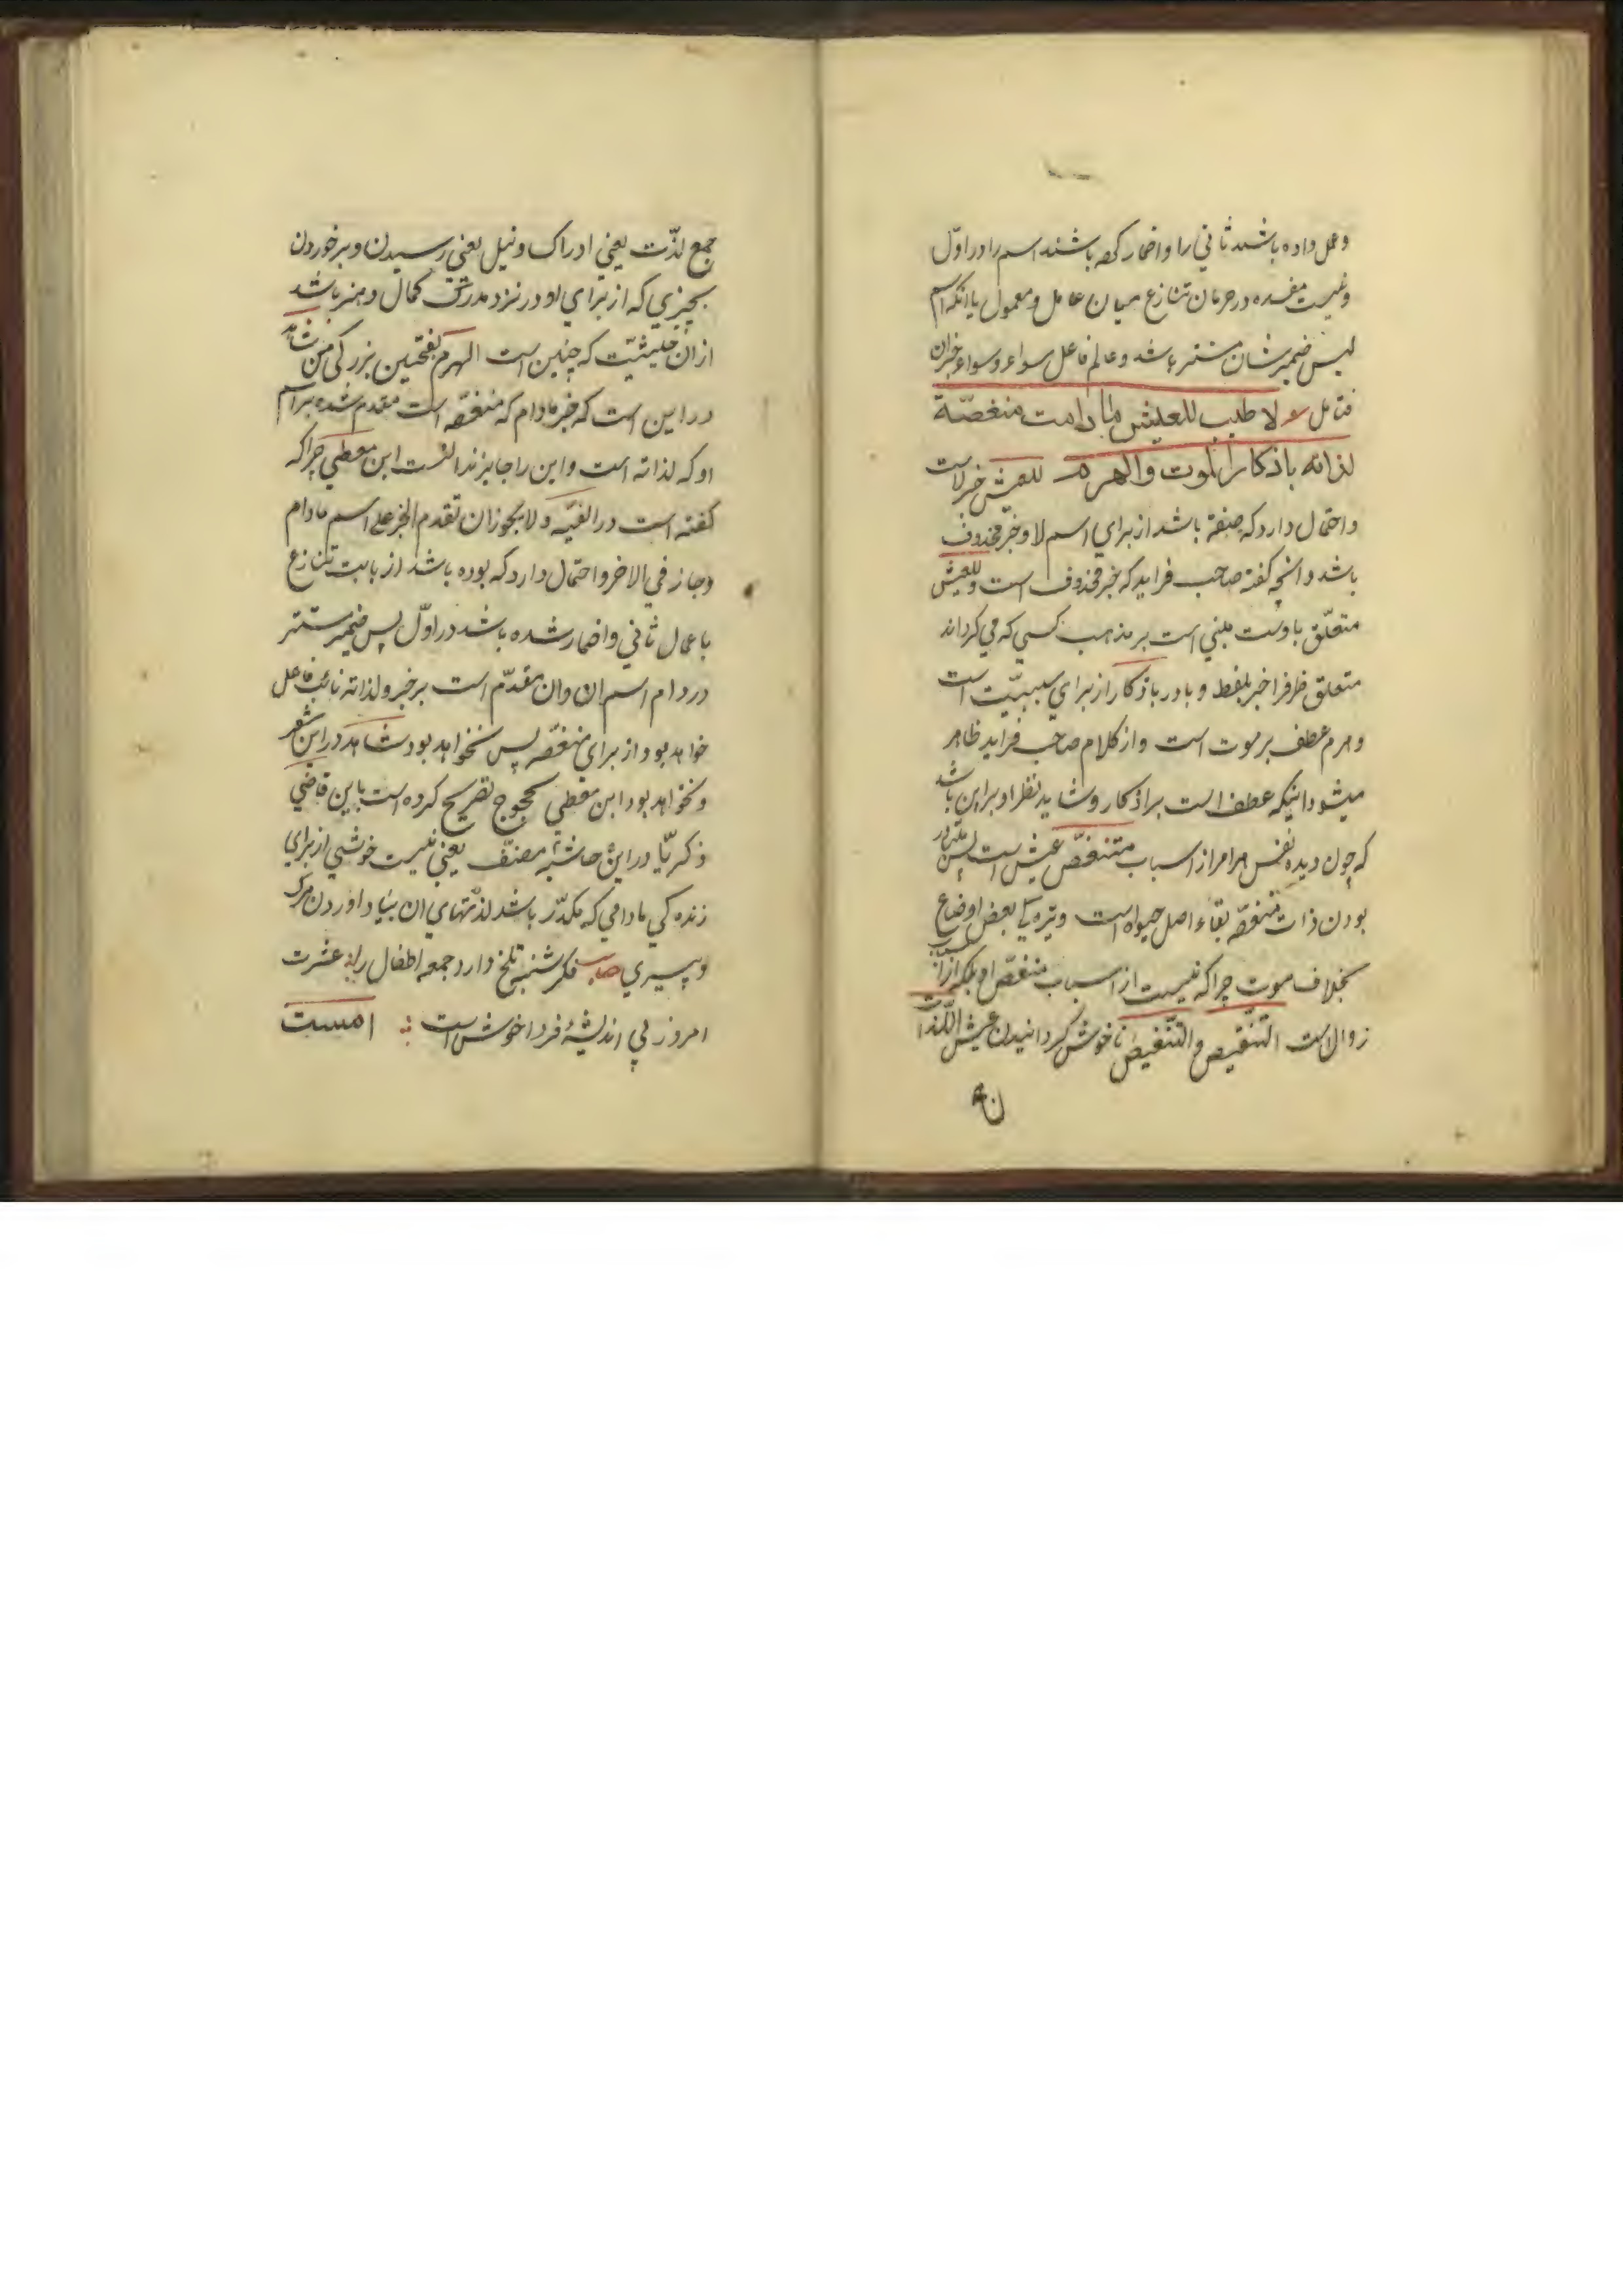 وعمل داده باشند ثانی را واضمار کرده باشند اسم را در اوّل
ونیست مفسده در حرمان تنازع میان عامل ومعمول یا انکه اسم
لیس ضمیر شان مستتر باشد وعالم فاعل سواء وسواء خبران
فتامل لا طیب للعیش مادامت منغصّة
لذاته باذکار الموت والهرم للعیش خبر لاست
واحتمال دارد که صفة باشد از برای اسم لا وخبر محذوف
باشد وانچه کفته صاحب فراید که خبر محذوف است وللعیش
متعلّق باوست مبنی است بر مذهب کسی که می کرداند
متعلق ظرفرا خبر بلفظ وبا در باذکار از برای سببیّت است
وهرم عطف بر موت است واز کلام صاحب فراید ظاهر
میشود اینکه عطف است بر اذکار وشاید نظر او بر این باشد
که چون دیده نفس هرم از اسباب متنغصّ عیش است پس
بودن ذات منغصّه بقاء اصل حیوة است وتیره کی بعض اوضاع
بخلاف موت چرا که نیست از اسباب منغصّ او بلکه از
زوال است التنقیص والتنغیص ناخوش کردانیدن عیش اللذات
جمع لذّت یعنی ادراک ونیل یعنی رسیدن وبر خوردن
بچیزی که از برای او در نزد مدرک کمال وهنر باشد
از ان حیثیّت که چنین است الهرم بفتحین بزرکی سن شاهد
در این است که خبر مادام که منغصّه است مقدم شده بر اسم
او که لذاته است واین را جایز ندانست ابن معطی چرا که
کفته است در الفیّه ولا یجوز ان تقدم الخبر علی اسم مادام
وجاز فی الاخر واحتمال دارد که بوده باشد از بابت تنازع
باعمال ثانی واضمار شده باشد در اوّل پس ضمیر مستتر
در دام اسم ان وان مقدّم است بر خبر ولذاته نائب فاعل
خواهد بود از برای منغصّه پس نخواهد بود شاهد در این شعر
ونخواهد بود ابن معطی محجوج تصریح کرده است باین قاضی
ذکریّا در این حاشیه مصنّف یعنی نیست خوشی از برای
زنده کی مادامی که مکدّر باشد لذّتهای ان بیاد اوردن مرک
وپیری صایب فکر شنبه تلخ دارد جمعه اطفال را عشرت
امروز بی اندیشهٔ فردا خوش است امست